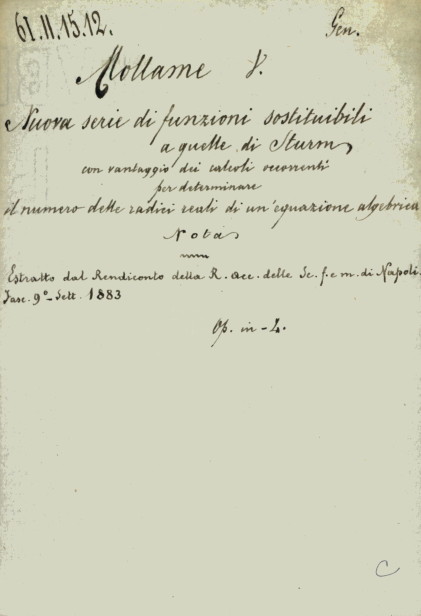 61.II.15.12.
Gen.
Mollame V.
Nuova serie di funzioni sostituibili
a quelle di Sturm
con vantaggio dei calcoli occorrenti
per determinare
il numero delle radici reali di un'equazione algebrica
Nota
Estratto dal Rendiconto della R. Acc. delle Sc. f. e m. di Napoli.
Fasc. 9º - Sett. 1883
Op. in - 4.
C